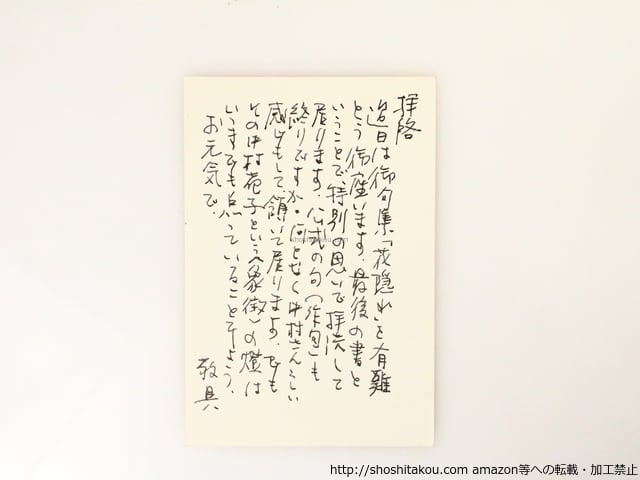 拝啓
過日は御句集「花隠れ」を有難
とう御座います。最後の書と
いうことで、特別の思いで拝読して
居ります。公式の句(作句)も
終りですか。何となく中村さんらしい
感じもして、頷いて居ります。でも
その中村苑子という〈象徴〉の燈は
いつまでも点っていることでしょう。
お元気で。
敬具
shoshitakou.com
http://shoshitakou.com amazon等への転載・加工禁止